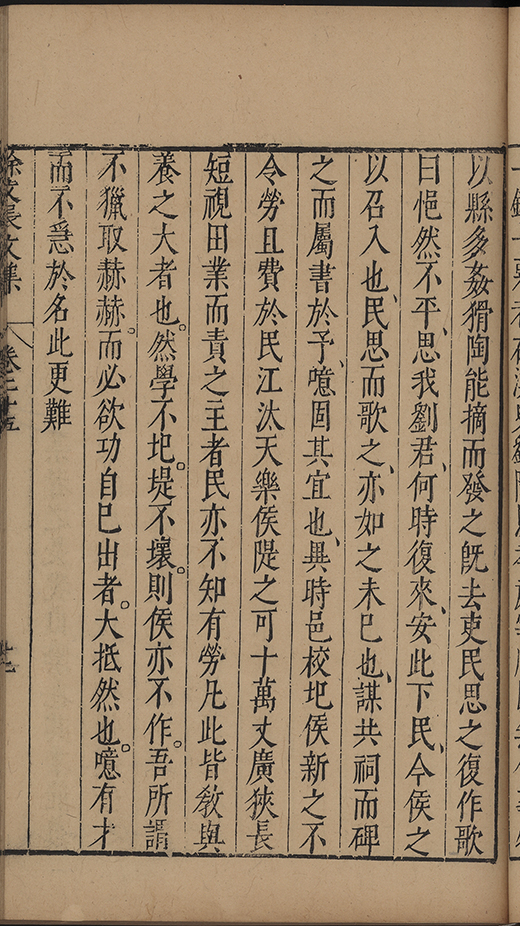 以縣多姦猾陶能摘而發之旣去吏民思之復作歌
曰悒然不平、思我劉君、何時復來、安此下民、今侯之
以召入也、民思而歌之、亦如之未已也、謀共祠而碑
之而屬書於予、噫固其宜也、異時邑校圮侯新之不
令勞且費於民江汰天樂侯隄之可十萬丈廣狹長
短視田業而責之主者民亦不知有勞凡此皆敎與
養之大者也。然學不圮。堤不壞。則侯亦不作。吾所謂
不獵取赫赫。而必欲功自巳出者。大抵然也。噫有才
而不急於名此更難
徐文長文集
卷二十五